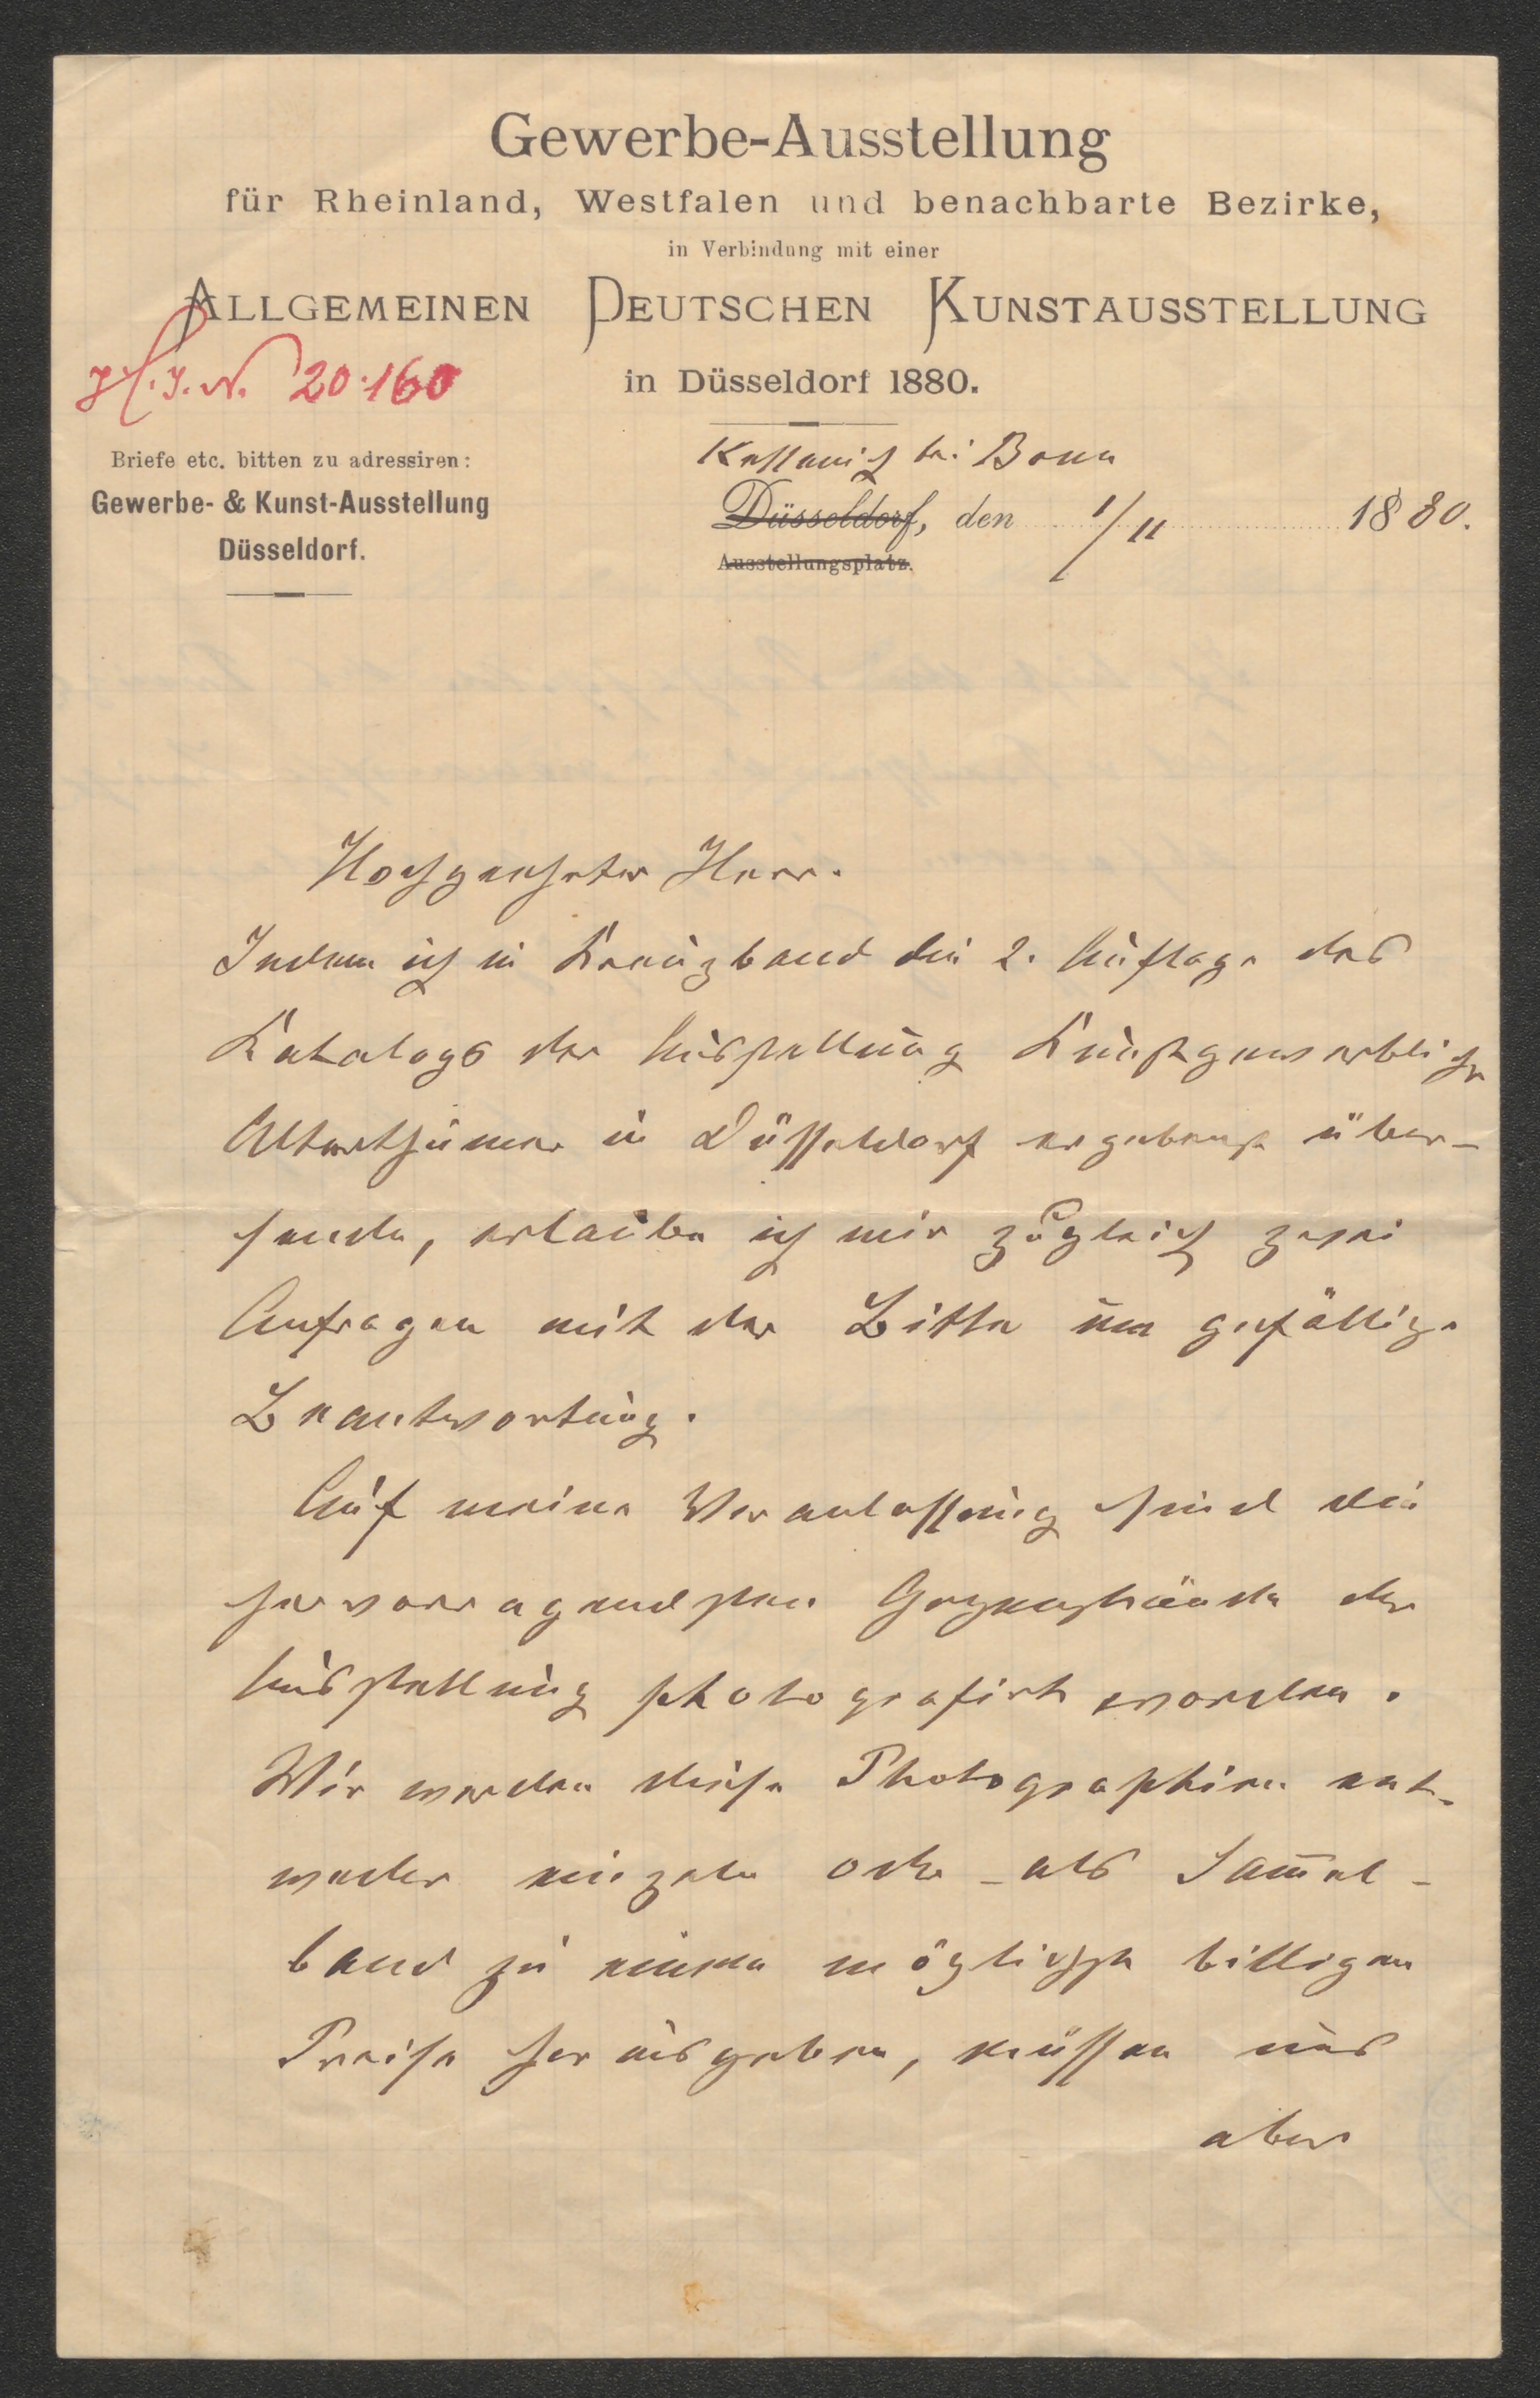 Gewerbe-Ausstellung
für Rheinland, Westfalen und benachbarte Bezirke,
in Verbindung mit einer
ALLGEMEINEN DEUTSCHEN KUNSTAUSSTELLUNG
in Düsseldorf 1880.
J.N. 20.160
Briefe etc. bitten zu adressiren:
Gewerbe- & Kunst-Ausstellung
Düsseldorf.
Kessenich bei Bonn
Düsseldorf, den 1/11 1880.
Ausstellungsplatz.
Hochgeehrter Herr.
Indem ich in Kreuzband die 2. Auflage des
Katalogs der Ausstellung Kunstgewerblicher
Alterthümer in Düsseldorf ergebenst über-
sende, erlaube ich mir zugleich zwei
Anfragen mit der Bitte um gefällige
Beantwortung.
Auf meine Veranlassung sind die
hervorragendsten Gegenstände der
Ausstellung photografirt worden.
Wir werden diese Photographien ent-
weder einzeln oder als Sam̄el-
band zu einem möglichst billigen
Preise herausgeben, müssen uns
aber